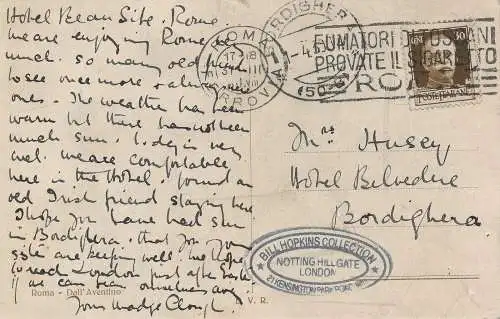 Hotel Beau Site. Rome
We are enjoying Rome so
much. so many old things
to see once more & new
ones. The weather has been
warm but there has not been
much sun. today is very
wet. We are comfortable
here in the Hotel. found an
old Irish friend staying here
I hope you have had sun
in Bordighera, that you & your
sister are keeping well. We hope
to reach London just after Easter
if we can tear ourselves away
Yours Madge Clough.
Roma - Dall'Aventino
V. R.
ROMA
FERROVIA
BORDIGHERA
FUMATORI DI TOSCANI
PROVATE IL SIGARETTO
ROMA
POSTE ITALIANE
Mrs Hussey
Hotel Belvedere
Bordighera
BILL HOPKINS COLLECTION
NOTTING HILL GATE
LONDON
21 KENSINGTON PARK ROAD